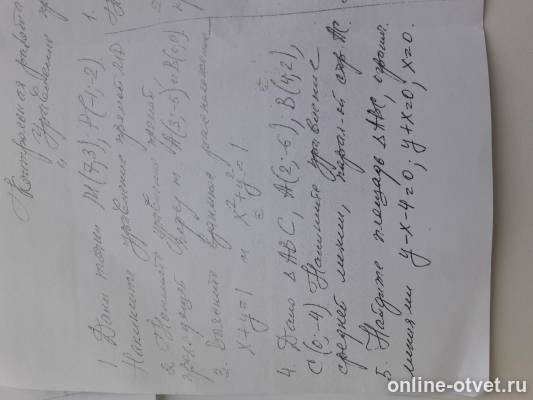 Контрольная работа
"Уравнение
1 Даны точки M(7;3), P(-1;-2).
Напишите уравнение прямой
2. Напишите уравнение прямой
проходящей через т A(3;-6) и B(
3. Выясните взаимное расположение
x+y=1 и x²+y²=1
4. Дано Δ ABC, A(2;-6); B(4,2),
C(0;-4) Напишите уравнение
средней линии, парал-ой стор. AC
5 Найдите площадь ΔABC, огранич.
линиями y-x-4=0; y+x=0, x=0.
1.
online-otvet.ru